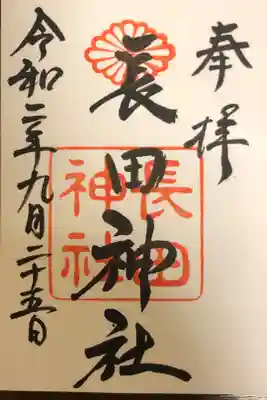 奉拝
長田神社
長田神社
令和二年九月二十五日